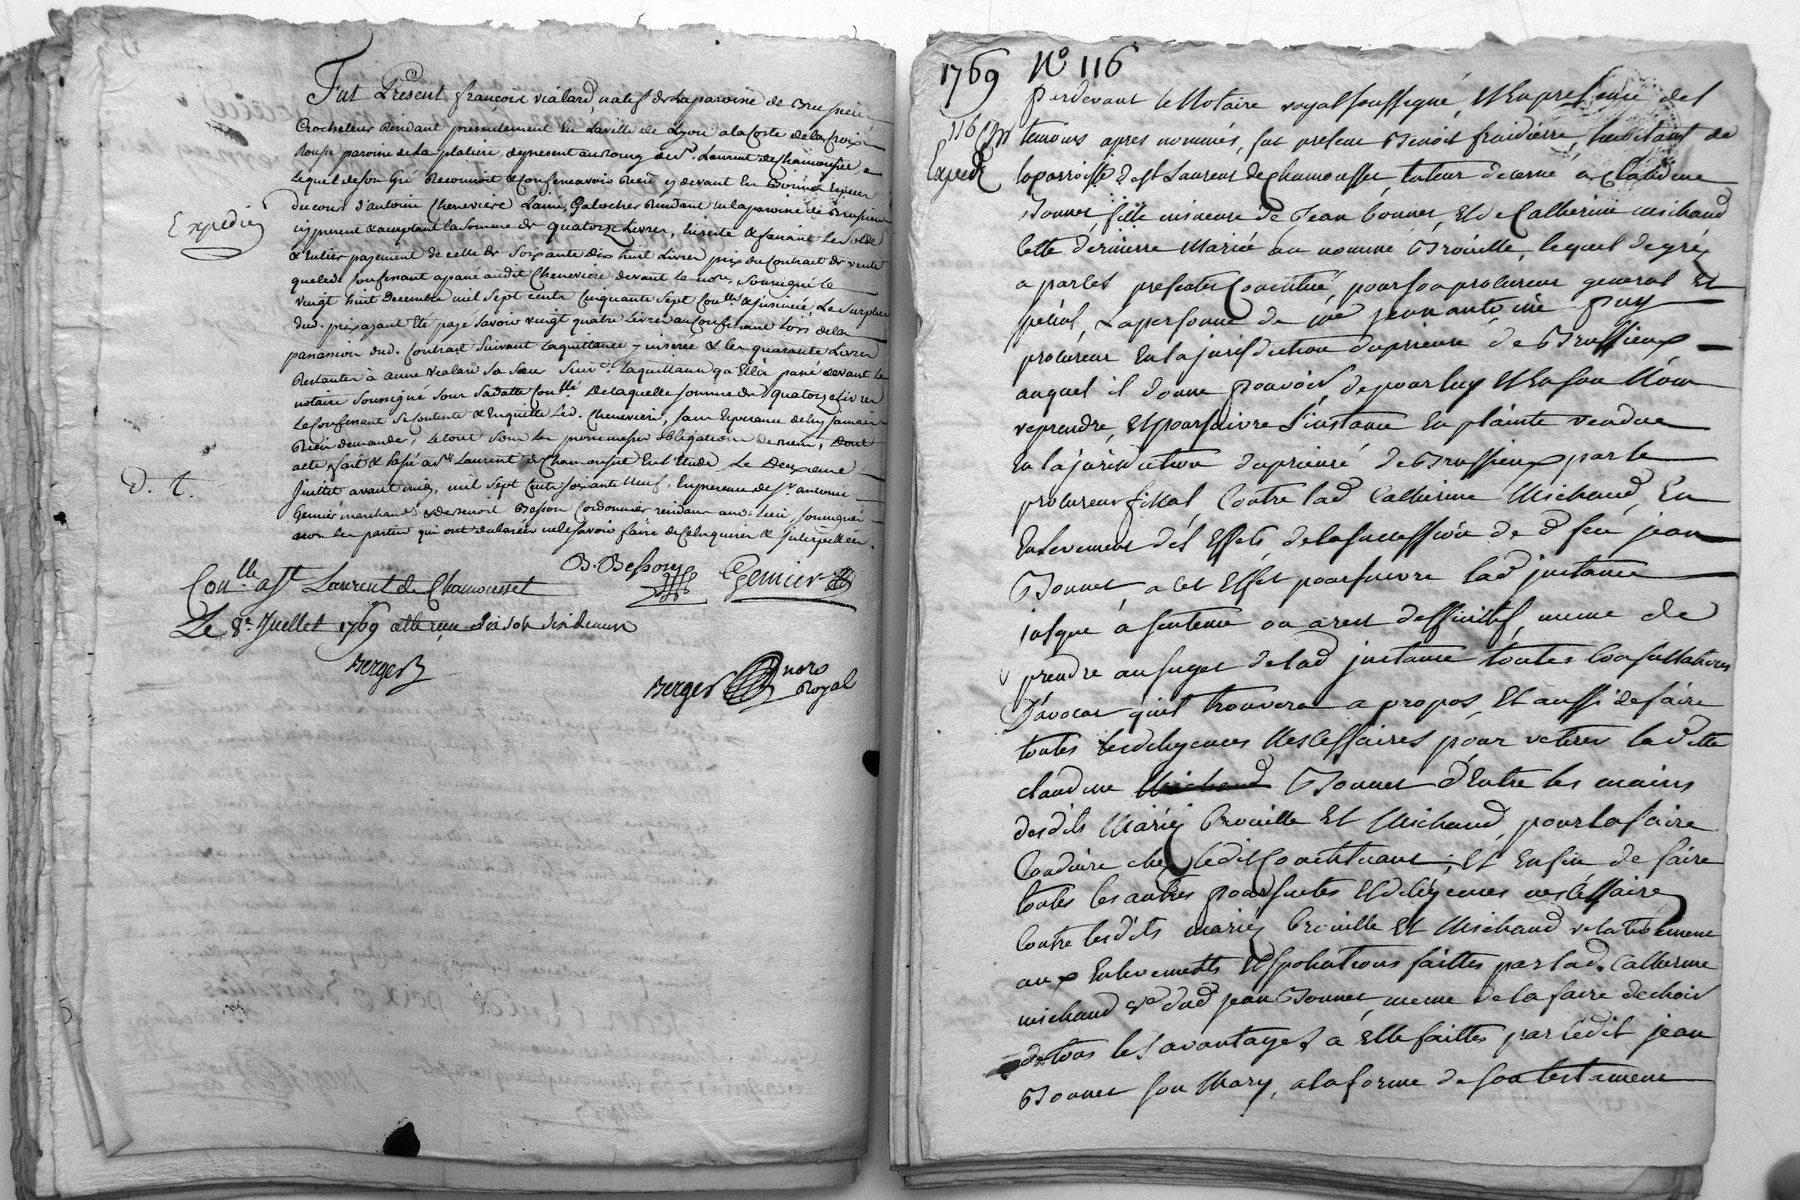 Fut Présent françois vialard, natif de la paroisse de Brussieu
Crocheteur Résidant présentement En la ville de Lyon a la Coste de la Croix
Rousse paroisse de la platiere, de present au Bourg de St. Laurent de Chamousset
Lequel de son Gré Reconnoit & Confesse avoir Reçu cy devant En Bonnes Especes
du cours d'antoine Cheneviere Laine, Galocher Résidant en la paroisse de Brussieu
cy present & acceptant la somme de quatorze Livres, En reste & faisant Le Solde
& Entier payement de celle de Soixante Dix huit Livres prix du Contrat de vente
que led. Confessant a passé audit Cheneviere devant le nore. Soussigné le
vingt huit Decembre mil Sept cents Cinquante Sept Conllé & insinué; Le Surplus
dud. prix ayant Eté payé Savoir vingt quatre Livres au Confessant Lors de la
passassion dud. Contrat Suivant La quittance y inserée & les quarante Livres
Restantes à anne vialard Sa Sœur Suivt. La quittance qu'Elle a passé devant Le
notaire Soussigné Sous Sa datte Conllé. De laquelle Somme de quatorze Livres
Le Confessant Se Contente & En quitte Led. Cheneviere, Sans Esperance de luy jamais
Rien demander, Le tout Sous les promesses obligations de biens, Dont
acte, fait & passé a St. Laurent de Chamousset En l'Etude Le Deuxieme
Juillet avant midy, mil Sept Cents Soixante Neuf, En presence de Sr. antoine
Genier marchand & de Benoit Besson Cordonnier residans aud. Lieu, Soussignés
non les parties qui ont declarées ne le Savoir faire de Ce Enquises & Interpellées.
Expedié
D. t.
B. Besson Genier
Conllé a St Laurent de Chamousset
Le 8e. Juillet 1769 & Reçu Dix Sols Six Deniers
Berger
Berger nore Royal
1769 No 116
116 C M
Expedié
Pardevant le Notaire royal soussigné, Et En presence des
temoins apres nommés, fut present Benoit fraidierre, habitant de
la parroisse de st Laurent de chamousset, tuteur decerné a Claudine
Bonnet, fille mineure de Jean bonnet, Et de Catherine michaud
cette derniere Mariée au nommé Brouille, lequel de gré
a par les presentes Constitué, pour son procureur general Et
spécial, La personne de me jean antoine Puy
procureur En la jurisdiction du prieuré de Brussieux
auquel il donne pouvoir de pour luy Et En son Nom
reprendre, Et poursuivre l'instance En plainte rendue
En la jurisdiction du prieuré de Brussieux par le
procureur fiscal, Contre lad. Catherine Michaud, En
Enlevement des Effets de la succession de d. feu jean
Bonnet, a cet Effet poursuivre lad. instance
jusque à sentence ou arest deffinitif, meme de
prendre au sujet de lad. instance toutes Consultations
D'avocat qu'il trouvera a propos, Et aussi de faire
toutes les diligences Nescessaires, pour retirer la ditte
claudine Michaud Bonnet d'Entre les mains
desdits Mariés Brouille Et Michaud, pour la faire
Conduire chez ledit Constituant; Et Enfin de faire
toutes les autres poursuites Et diligences nescessaires
Contre lesdits mariés Brouille Et Michaud relativement
aux Enlevements Et spoliations faittes par lad. Catherine
michaud ve dud. jean Bonnet, meme de la faire dechoir
de tous les avantages a Elle faittes par ledit jean
Bonnet son Mary, a la forme de son testament